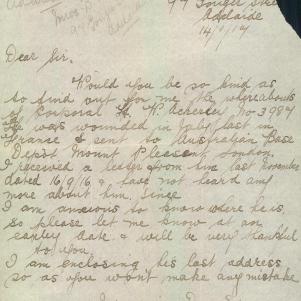 Adelaide
14/1/17
Dear Sir.
Would you be so kind as
to find out for me the whereabouts
of Corporal H. W. No 3984
He was wounded in July last in
France & sent to Australian Base
Depot Mount Pleasant London.
I received a letter from him last November
dated 16/9/16 & have not heard any
more about him. Since
I am anxious to know where he is
so please let me know at an
earley date & will be very thankful
to you
I am enclosing his last address
so as you wont make any mistake